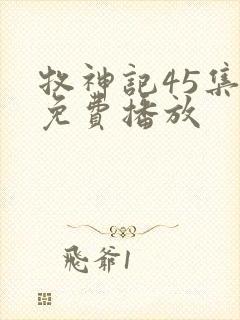 牧神記45集
免費播放
飛爺1